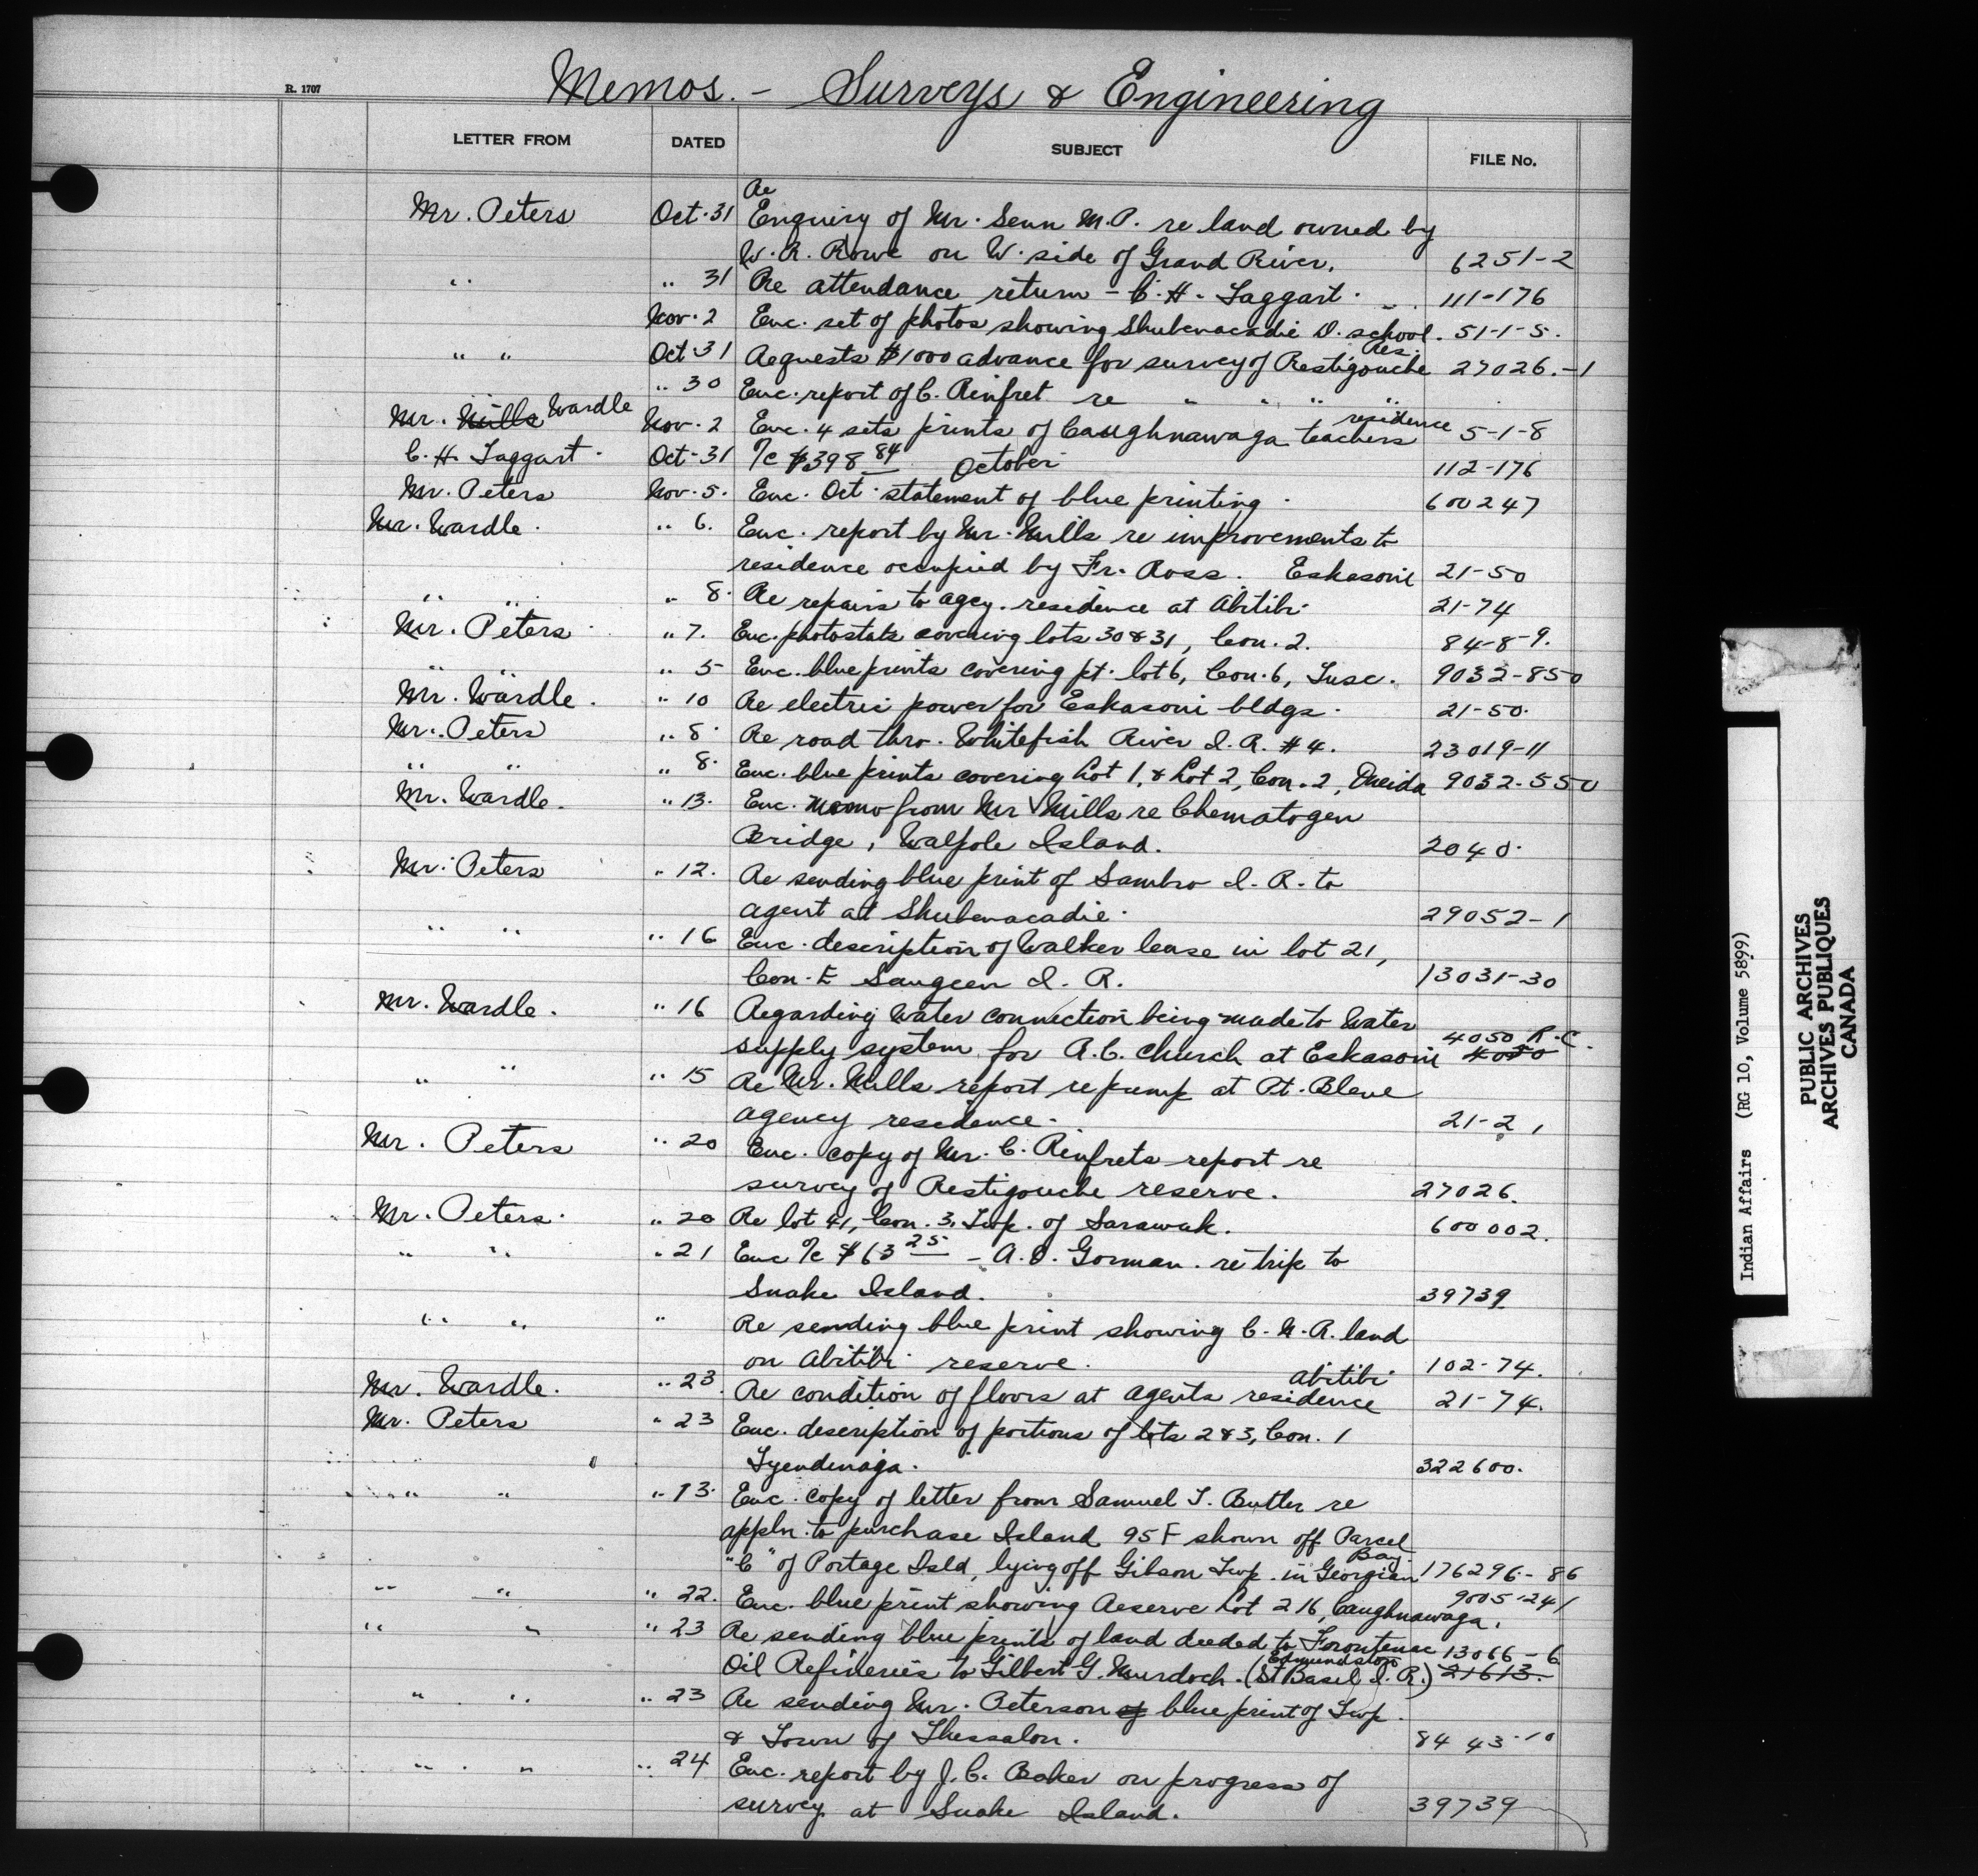 Memos. - Surveys & Engineering
R. 1707
LETTER FROM DATED SUBJECT FILE No.
Re
Mr. Peters Oct. 31 Enquiry of Mr. Senn M.P. re land owned by
W. R. Rowe on W. side of Grand River. 6251-2
" " 31 Re attendance return - C. H. Taggart. 111-176
Nov. 2 Enc. set of photos showing Shubenacadie D. school. 51-1-5.
Res.
" " Oct. 31 Requests $1000 advance for survey of Restigouche 27026.-1
" 30 Enc. report of C. Rinfret re " " " "
residence
Mr. Mills Wardle Nov. 2 Enc. 4 sets prints of Caughnawaga teachers 5-1-8
C. H. Taggart. Oct. 31 %c $398 84 October 112-176
Mr. Peters Nov. 5. Enc. Oct. statement of blue printing. 600247
Mr. Wardle. " 6. Enc. report by Mr. Mills re improvements to
residence occupied by Fr. Ross. Eskasoni 21-50
" " " 8. Re repairs to agcy. residence at Abitibi. 21-74
Mr. Peters " 7. Enc. photostats covering lots 30 & 31, Con. 2. 84-8-9.
" " " 5 Enc. blue prints covering pt. lot 6, Con. 6, Tusc. 9032-850
Mr. Wardle. " 10 Re electric power for Eskasoni bldgs. 21-50.
Mr. Peters " 8. Re road thro. Whitefish River I. R. #4. 23019-11
" " " 8. Enc. blue prints covering Lot 1, & Lot 2, Con. 2, Oneida 9032-550
Mr. Wardle. " 13. Enc. memo from Mr Mills re Chematogen
Bridge, Walpole Island. 2040.
Mr. Peters " 12. Re sending blue print of Sambro I. R. to
agent at Shubenacadie. 29052-1
" " " 16 Enc. description of Walker lease in lot 21,
Con. E Saugeen I. R. 13031-30
Mr. Wardle. " 16 Regarding water connection being made to water
4050 R.C.
supply system for R.C. church at Eskasoni 4050
" " " 15 Re Mr. Mills report re pump at Pt. Bleue
agency residence. 21-2,
Mr. Peters " 20 Enc. copy of Mr. C. Rinfrets report re
survey of Restigouche reserve. 27026.
Mr. Peters. " 20 Re lot 41, Con. 3, Twp. of Sarawak. 600002.
" " " 21 Enc %c $63 25 - A. D. Gorman. re trip to
Snake Island. 39739
" " " Re sending blue print showing C. N. R. land
on Abitibi reserve. 102-74.
Abitibi
Mr. Wardle. " 23 Re condition of floors at agents residence 21-74.
Mr. Peters " 23 Enc. description of portions of lots 2 & 3, Con. 1
Tyendinaga. 322600.
" " " 13. Enc. copy of letter from Samuel T. Butler re
appln. to purchase Island 95F shown off Parcel
Bay.
"C" of Portage Isld, lying off Gibson Twp. in Georgian 176296-86
" " " 22. Enc. blue print showing Reserve Lot 216, Caughnawaga. 9005-241
" " " 23 Re sending blue prints of land deeded to Frontenac 13066-6
Edmundston
Oil Refineries to Gilbert G. Murdoch. (St Basil I. R.) 21613.
" " " 23 Re sending Mr. Peterson of blue print of Twp.
& Town of Thessalon. 8443-10
" " " 24 Enc. report by J. C. Baker on progress of
survey at Snake Island. 39739
Indian Affairs (RG 10, Volume 5899)
PUBLIC ARCHIVES
ARCHIVES PUBLIQUES
CANADA